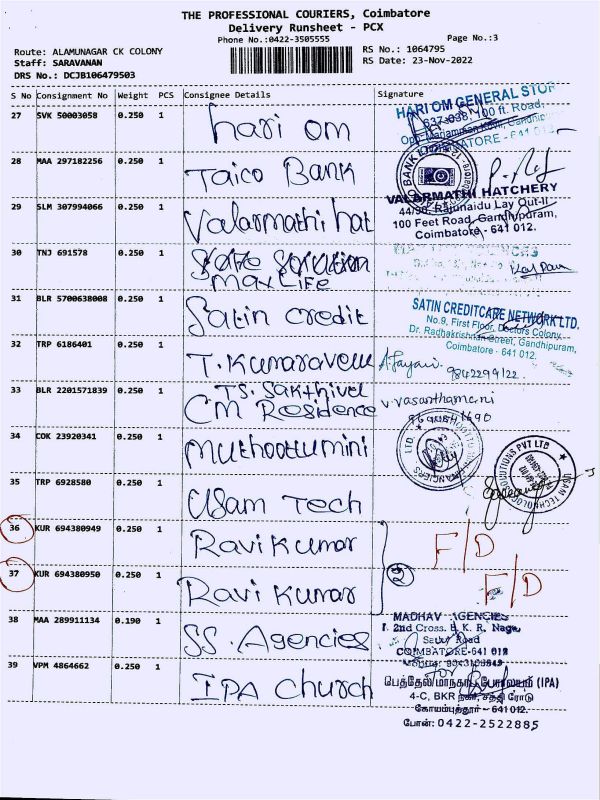 THE PROFESSIONAL COURIERS, Coimbatore
Delivery Runsheet - PCX
Phone No.:0422-3505555
Page No.:3
Route: ALAMUNAGAR CK COLONY
RS No.: 1064795
Staff: SARAVANAN
RS Date: 23-Nov-2022
DRS No.: DCJB106479503
S No Consignment No Weight PCS Consignee Details Signature
27 SVK 50003058 0.250 1 hari om
HARI OM GENERAL STOR
100 ft. Road,
28 MAA 297182256 0.250 1 Taico Bank
29 SLM 307994066 0.250 1 Valarmathi hat
VALARMATHI HATCHERY
44/98, Rajunaidu Lay Out-II
100 Feet Road, Gandhipuram,
Coimbatore - 641 012.
30 TNJ 691578 0.250 1
Max LIFE
31 BLR 5700638008 0.250 1 Satin credit
SATIN CREDITCARE NETWORK LTD.
No.9, First Floor, Doctors Colony
Dr. Radhakrishnan Street, Gandhipuram,
Coimbatore - 641 012.
32 TRP 6186401 0.250 1 T. Kumaravelu
9842299122
33 BLR 2201571839 0.250 1 TS. Sakthivel
CM Residence
V. Vasanthamani
34 COK 23920341 0.250 1 muthoottu mini
35 TRP 6928580 0.250 1 Usam Tech
USAM TECHNOLOGY SOLUTIONS PVT LTD
36 KUR 694380949 0.250 1 Ravi Kumar F/D
37 KUR 694380950 0.250 1 Ravi Kumar F/D
38 MAA 289911134 0.190 1 SS. Agencies
MADHAV AGENCIES
2nd Cross. B. K. R. Nagar
Road
COIMBATORE-641 012
39 VPM 4864662 0.250 1 IPA Church
for
(IPA)
4-C, BKR நகர், சத்தி ரோடு
கோயம்புத்தூர் - 641012.
போன்: 0422-2522885